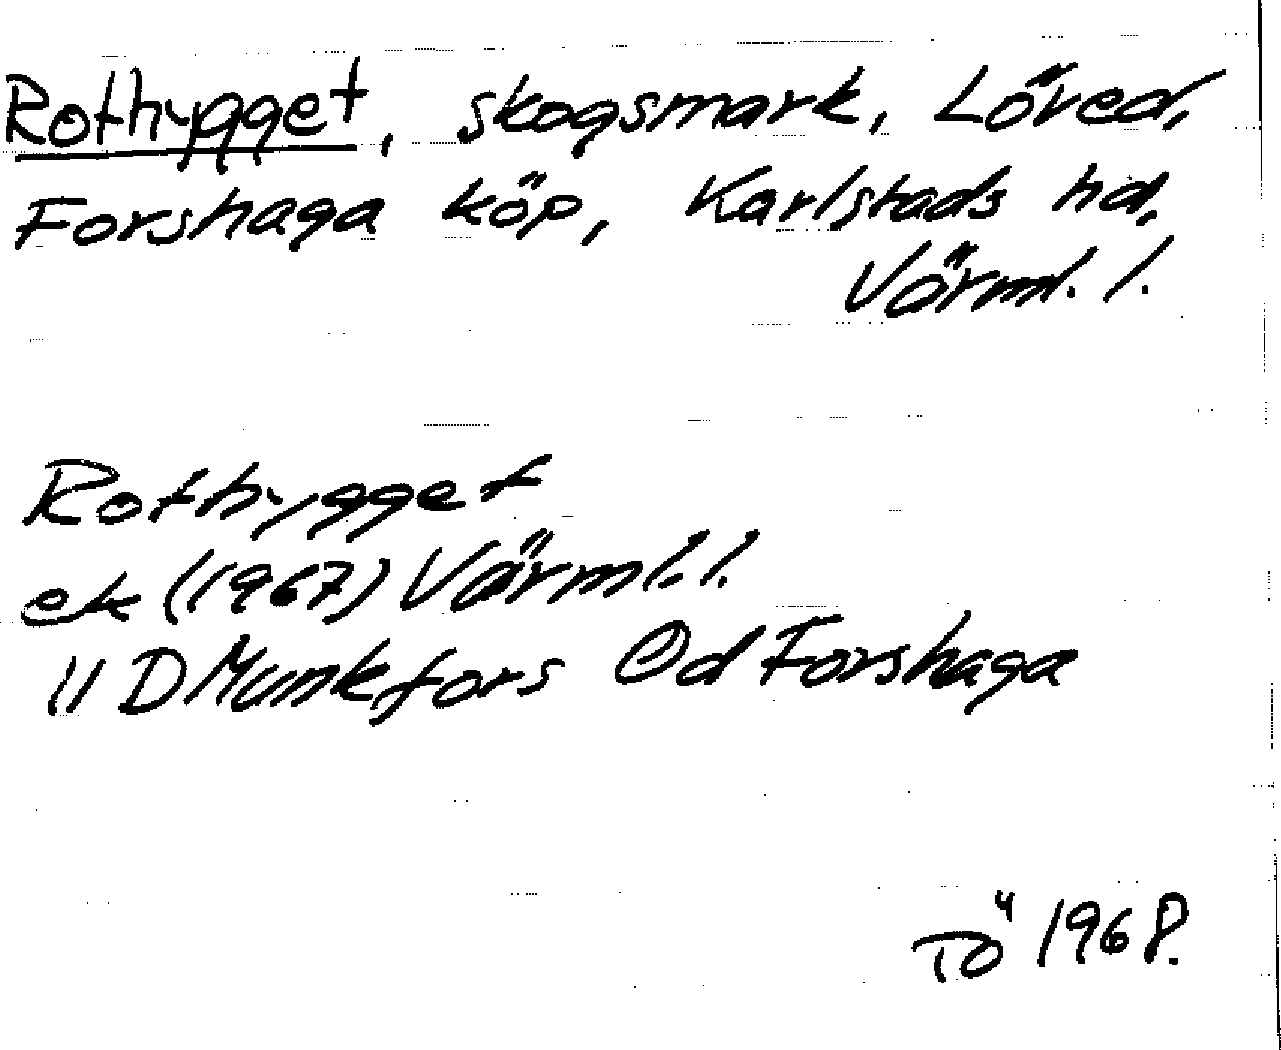 Rothygget, skogsmark, Löved,
Forshaga köp, Karlstads hd,
Värml. l.
Rothygget
ek (1967) Värml. l.
11 D Munkfors Od Forshaga
TÖ 1968.